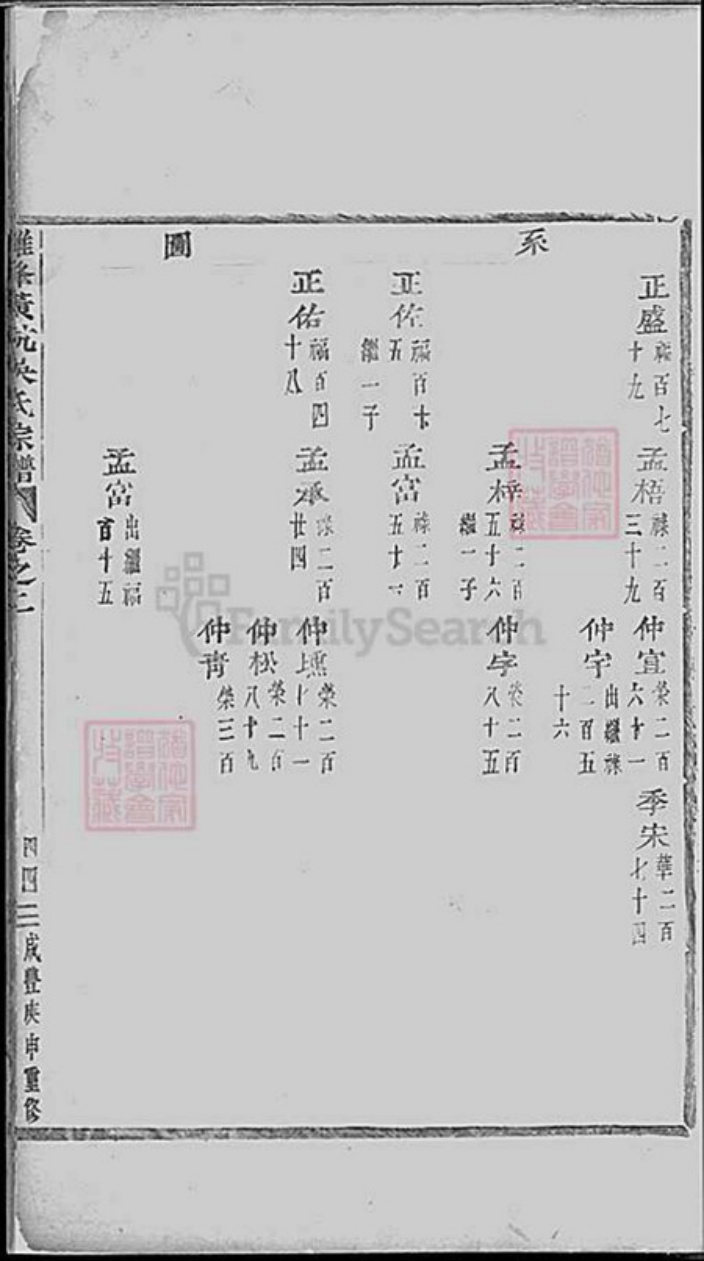 系
圖
正盛 福百七十九
孟梧 祿二百三十九
仲宜 榮二百六十一
季宋 華二百七十四
仲宇 出繼祿二百五十六
孟梓 祿二百五十六 繼一子
仲宇 榮二百八十五
正佐 福百十五 繼一子
孟富 祿二百五十一
正佑 福百四十八
孟承 祿二百廿四
仲 榮二百七十一
仲松 榮二百八十九
仲青 榮三百
孟富 出繼福百十五
黃 吳氏宗譜 卷之三
四四三 咸豐庚申重修
FamilySearch